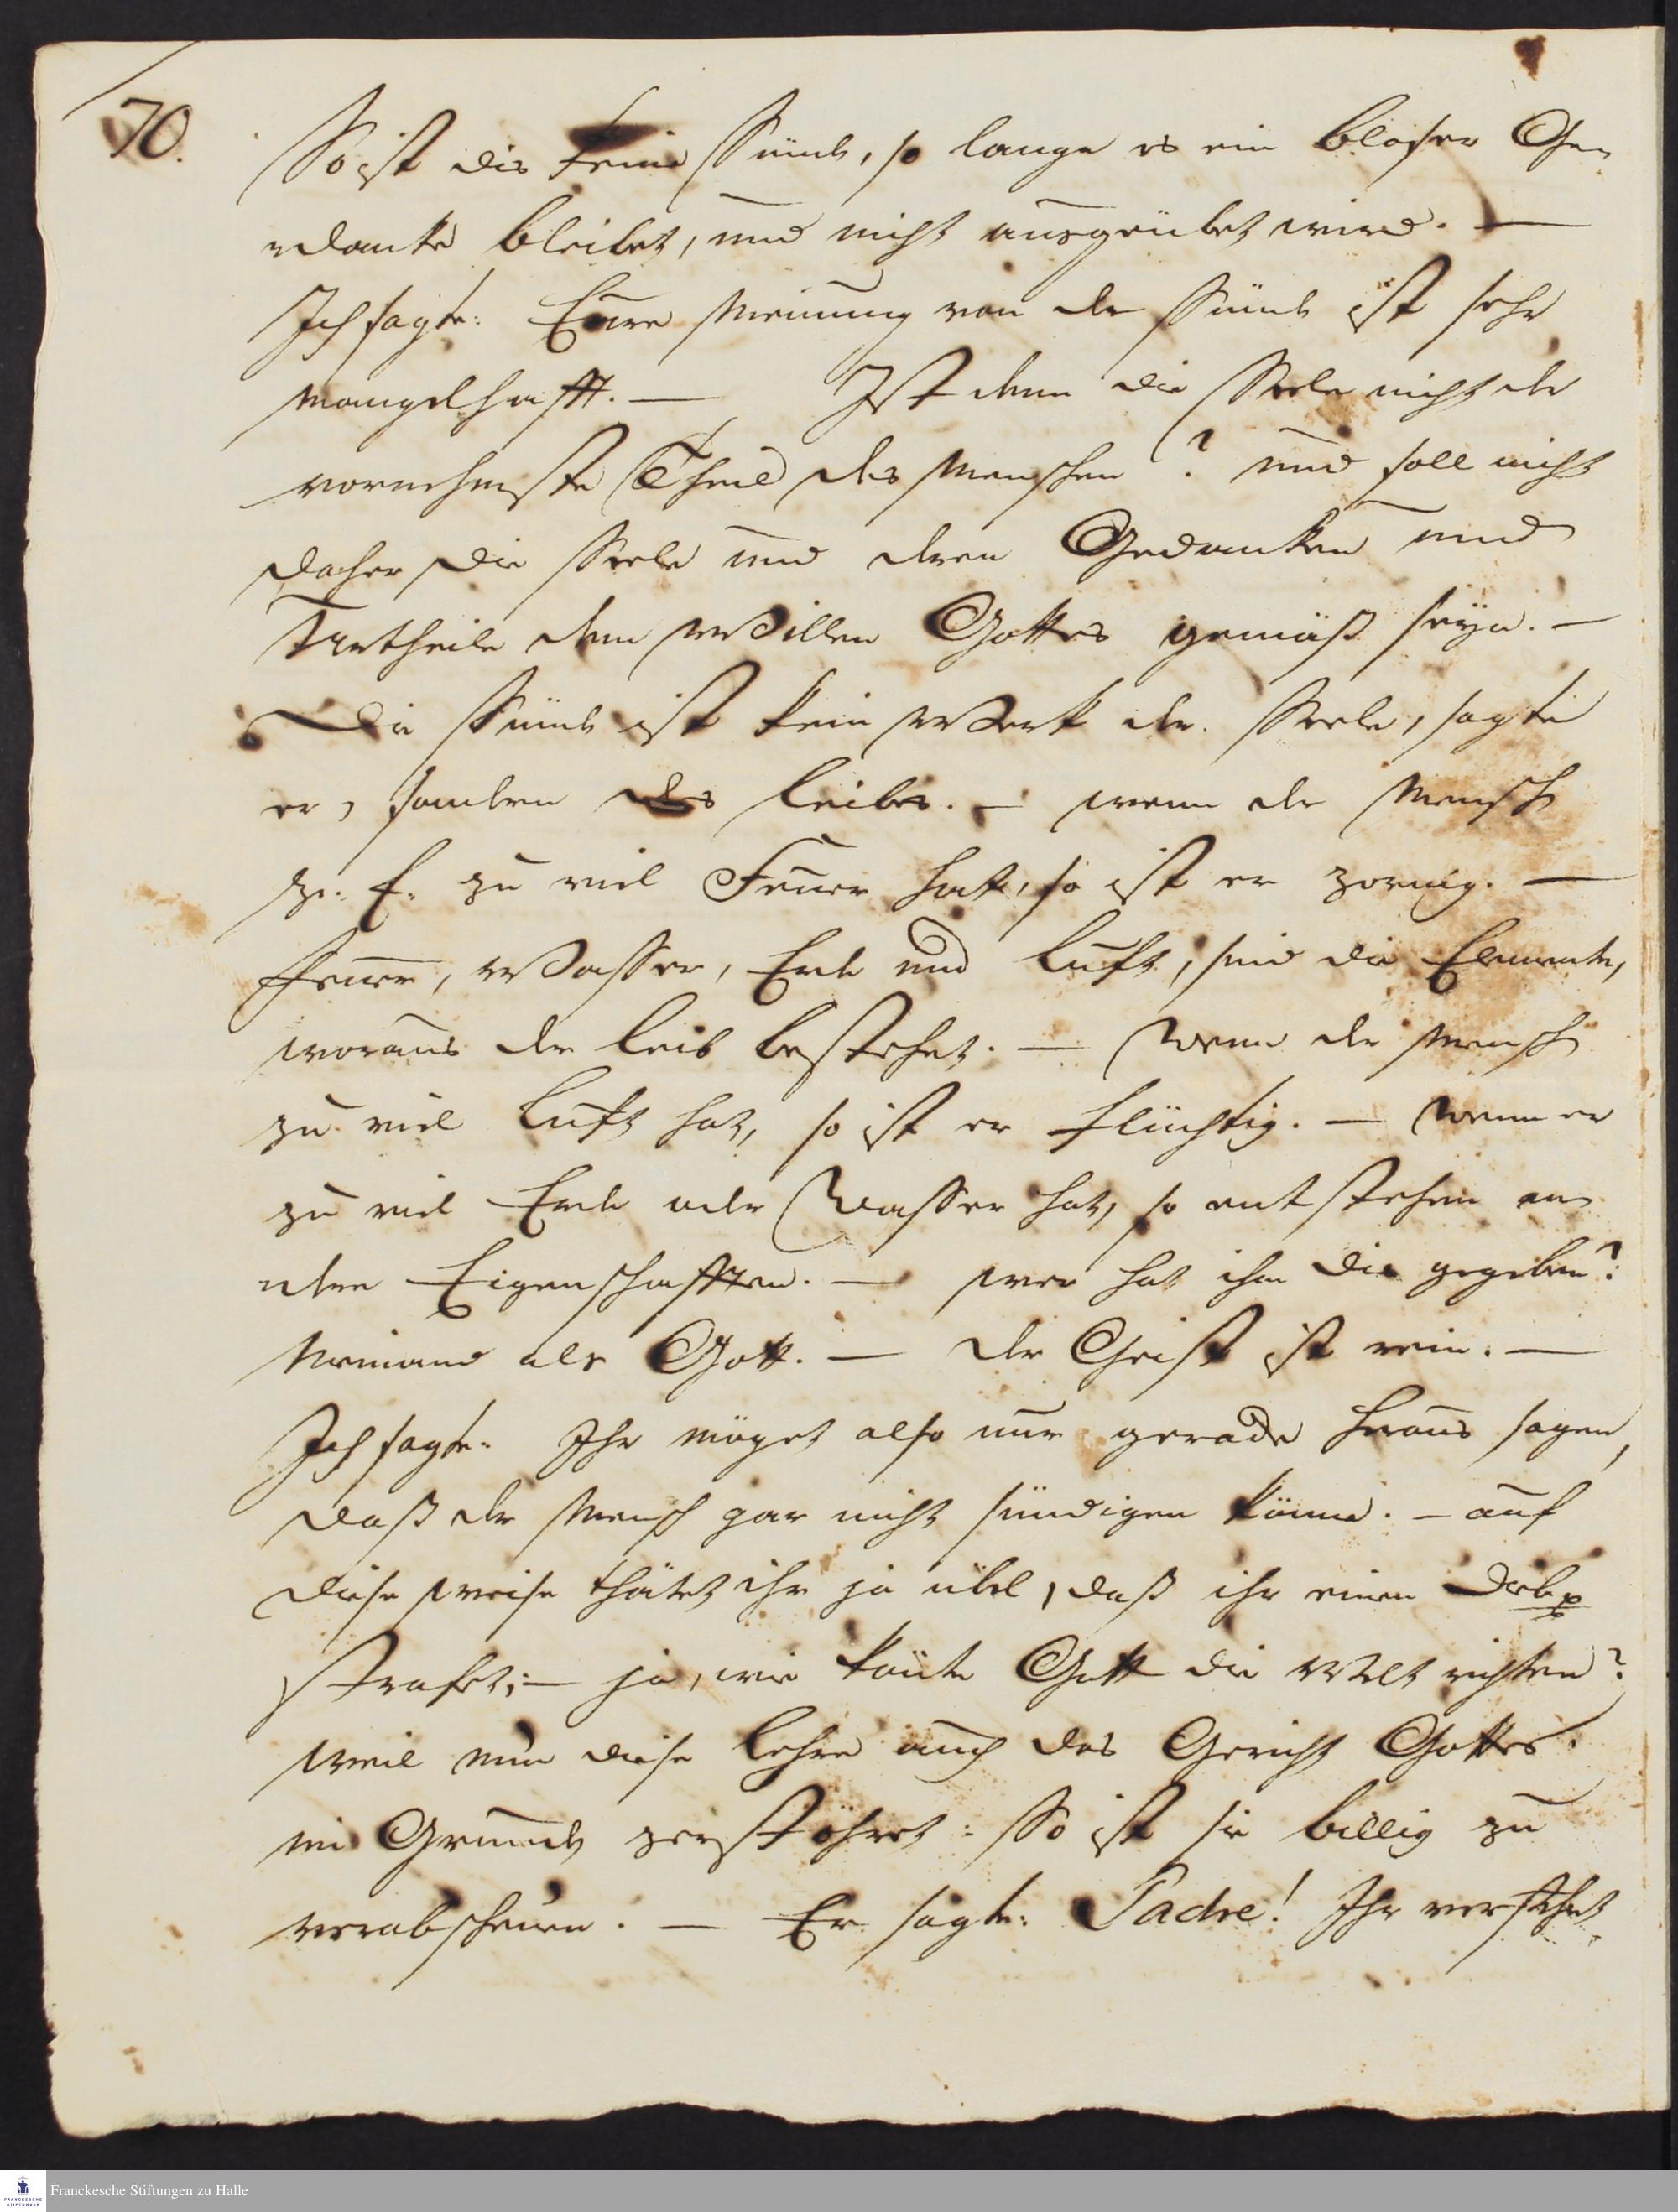 70.
So ist dis keine Sünde, so lange es ein bloser Ge-
danke bleibet, und nicht ausgeübet wird. —
Ich sagte: Eure Meinung von der Sünde ist sehr
mangelhafft. — Ist denn die Seele nicht der
vornehmste Theil des Menschen? und soll nicht
daher die Seele und deren Gedanken und
Urtheile dem Willen Gottes gemäß seyn. —
Die Sünde ist kein Werk der Seele, sagte
er, sondern des Leibes. — wenn der Mensch
z. E. zu viel Feuer hat, so ist er zornig. —
Feuer, Wasser, Erde und Luft, sind die Elemente,
woraus der Leib bestehet. — Wenn der Mensch
zu viel Luft hat, so ist er flüchtig. — Wenn er
zu viel Erde oder Wasser hat, so entstehen an-
dere Eigenschafften. — wer hat ihm die gegeben?
Niemand als Gott. — Der Geist ist rein. —
Ich sagte: Ihr möget also nur gerade heraus sagen,
daß der Mensch gar nicht sündigen könne. — auf
diese Weise thätet ihr ja übel, daß ihr einen Dieb
strafet; — ja, wie könte Gott die Welt richten?
Weil nun diese Lehre auch das Gericht Gottes
im Grunde zerstöhret: So ist sie billig zu
verabscheuen. — Er sagte: Padre! Ihr verstehet
Franckesche Stiftungen zu Halle